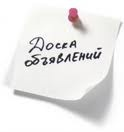 Доска
объявлений